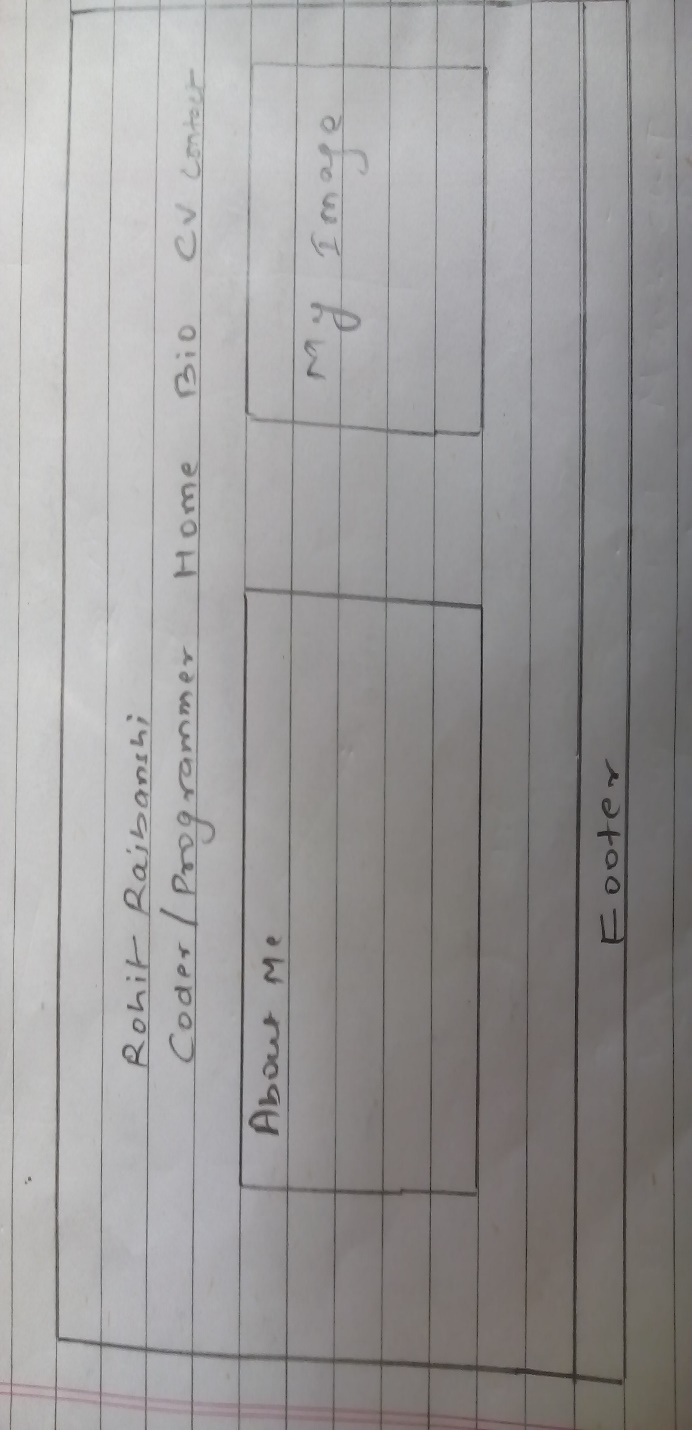 Rohit Rajbanshi
Coder/Programmer Home Bio CV Contact
About Me
My Image
Footer